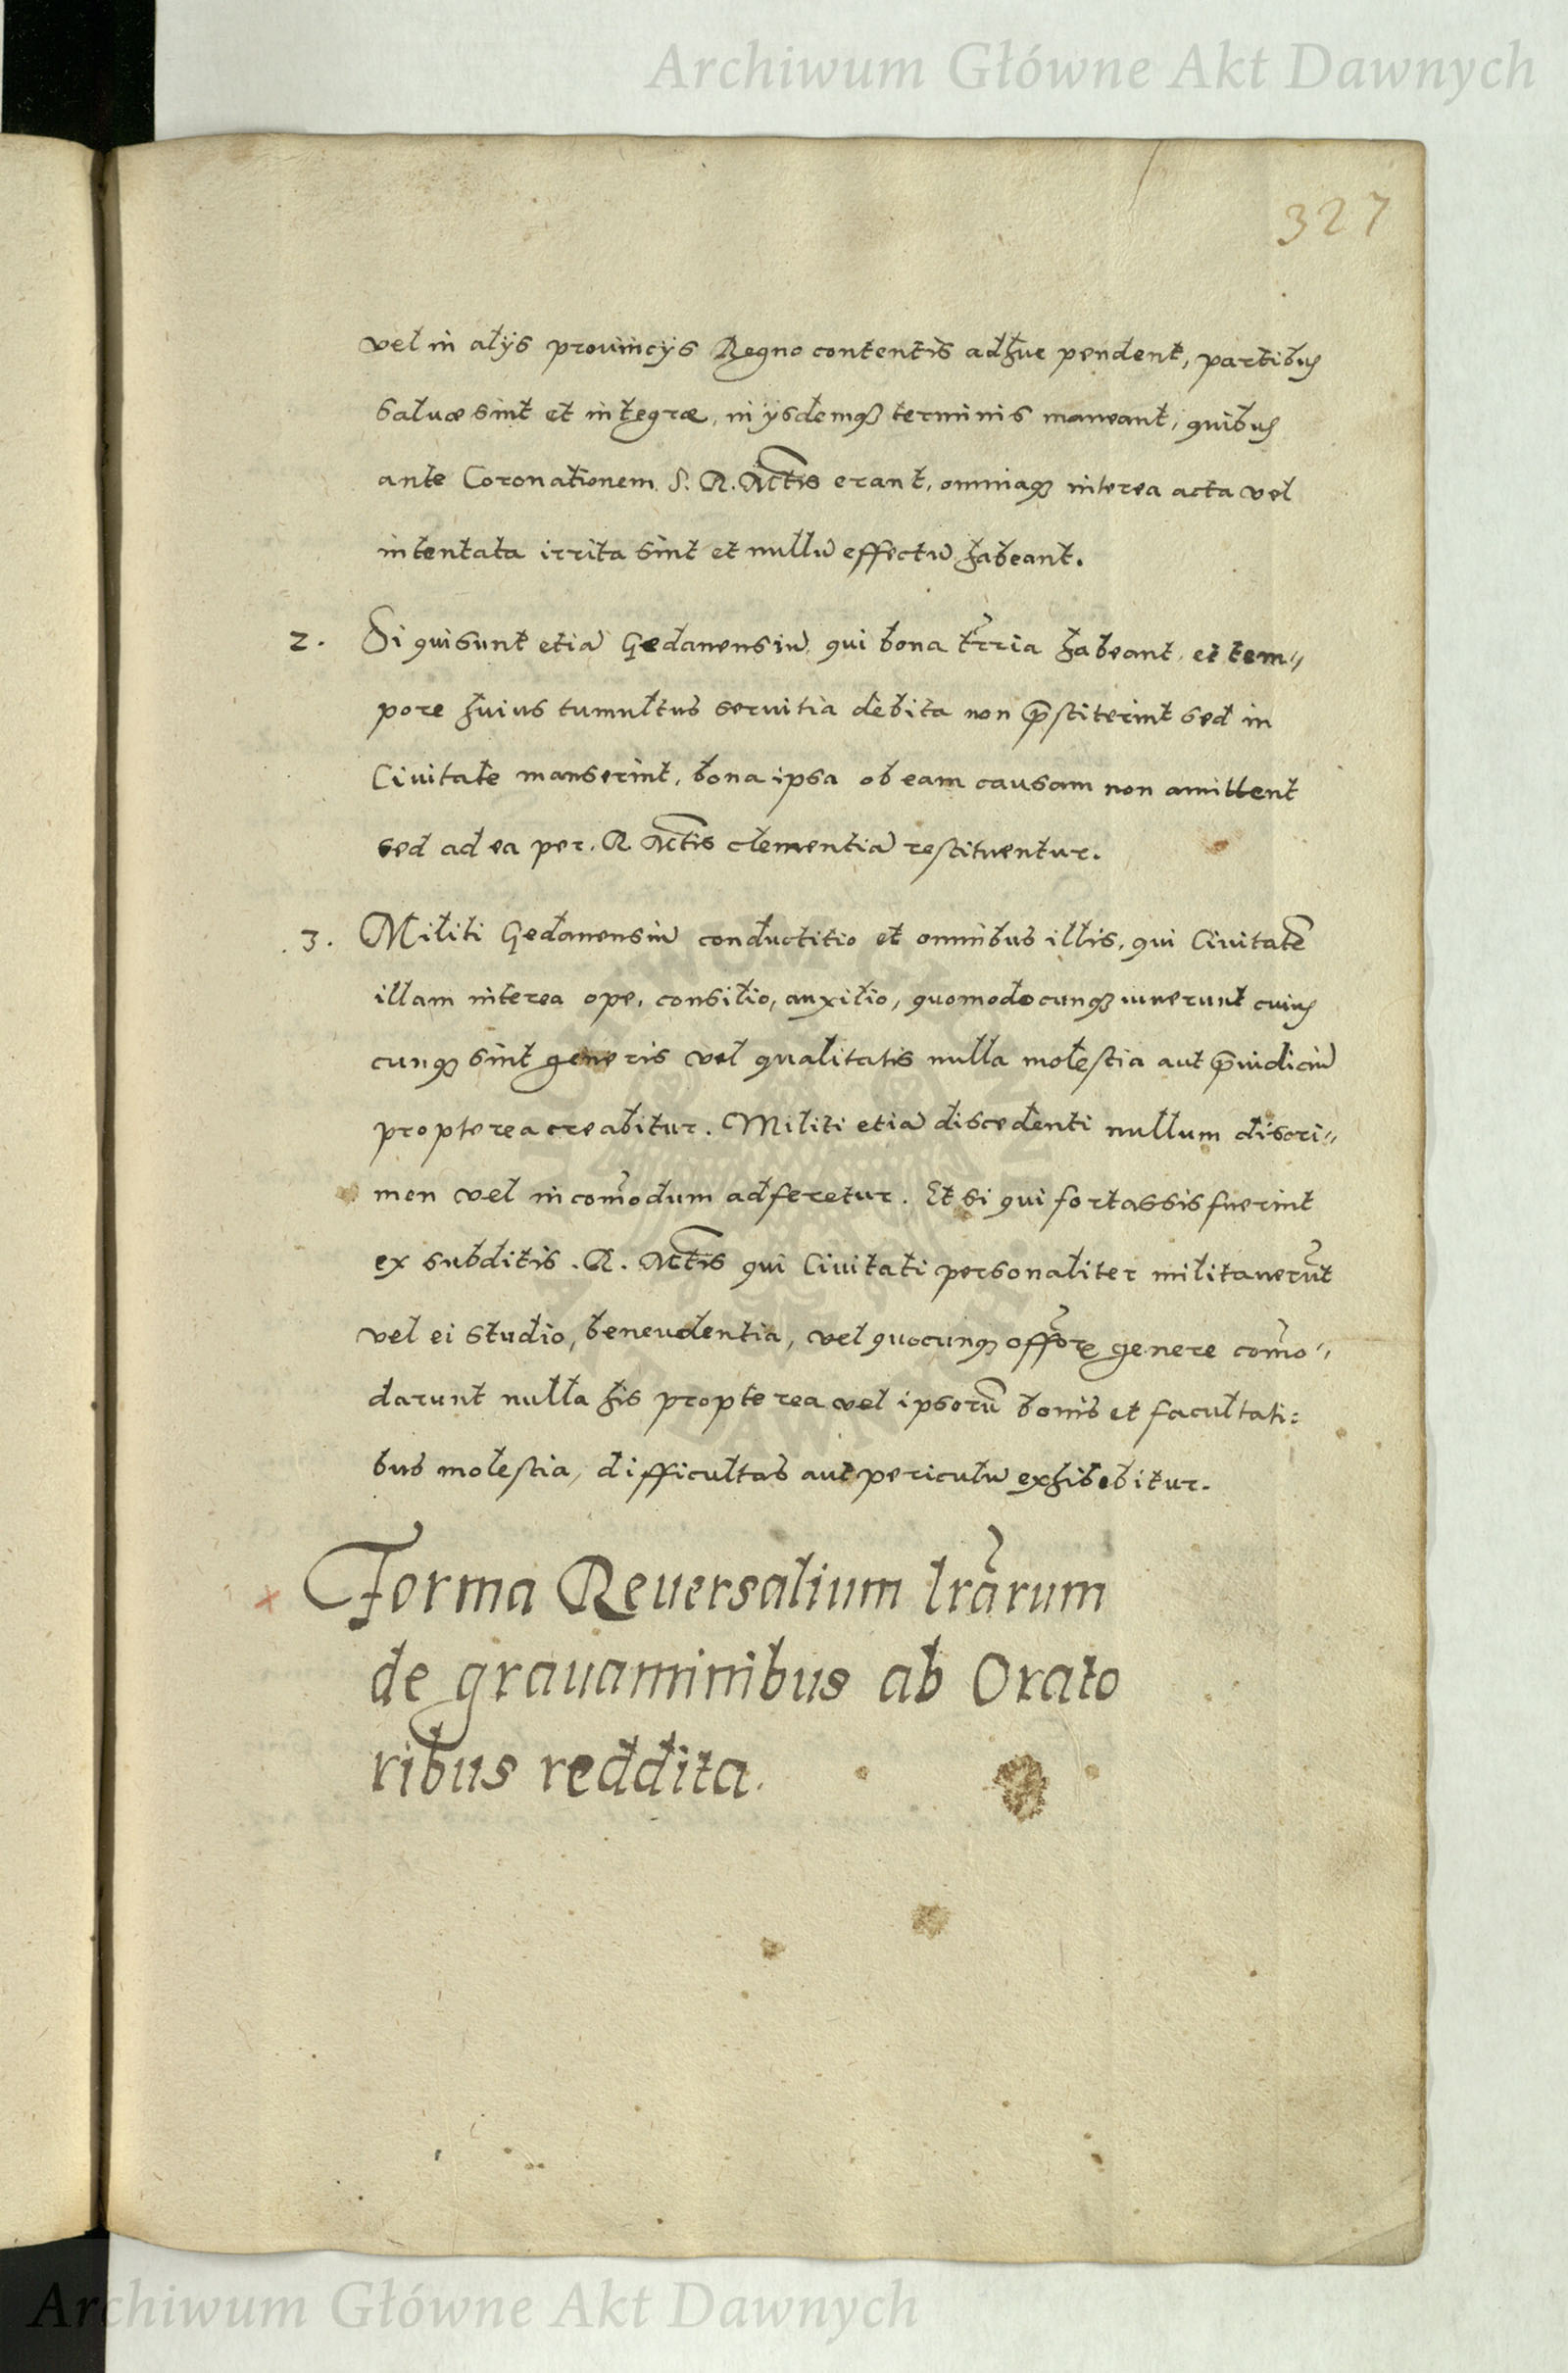 Archiwum Główne Akt Dawnych
327
vel in alijs prouincijs Regno contentis adhuc pendent, partibus
saluæ sint et integræ, in ijsdemq3 terminis maneant, quibus
ante Coronationem S. R. Mtis erant, omniaq3 interea acta vel
intentata irrita sint et nullū effectū habeant.
2. Si qui sunt etiā Gedanensiū qui bona trria habeant et tem„
pore huius tumultus seruitia debita non p̄stiterint sed in
Ciuitate manserint, bona ipsa ob eam causam non amittent
sed ad ea per. R. Mtis clementiā restituentur.
3. Militi Gedanensiū conductitio et omnibus illis, qui Ciuitatē
illam interea ope, consilio, auxilio, quomodocunq3 iuuerunt cuius
cunq3 sint generis vel qualitatis nulla molestia aut p̄iudiciū
propterea creabitur. Militi etiā discedenti nullum discri„
men vel incom̄odum adferetur. Et si qui fortassis fuerint
ex subditis. R. Mtis qui Ciuitati personaliter militauerūt
vel ei studio, beneuolentia, vel quocunq3 offore genere com̄o„
darunt nulla his propterea vel ipsorū bonis et facultati:
bus molestia, difficultas aut periculū exhibebitur.
x Forma Reuersalium lrārum
de grauaminibus ab Orato
ribus reddita.
Archiwum Główne Akt Dawnych